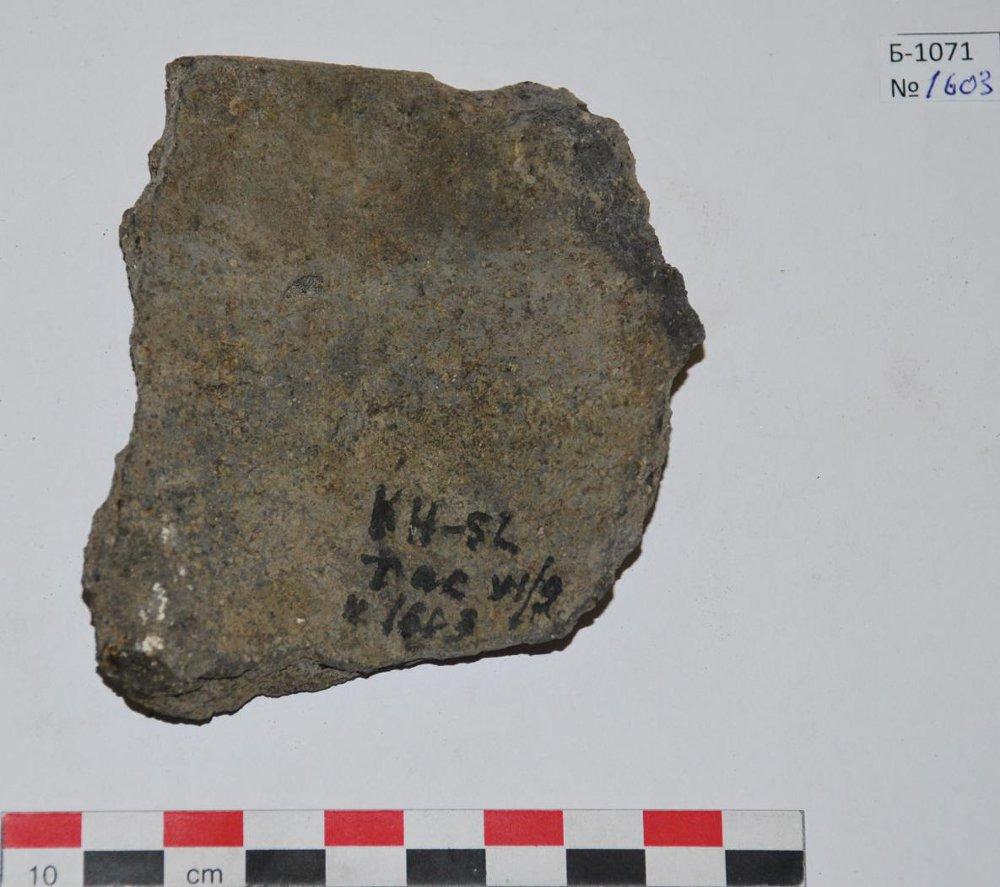 Б-1071
№ 1603
КН-52
Пас VI/9
№ 1603
10 cm